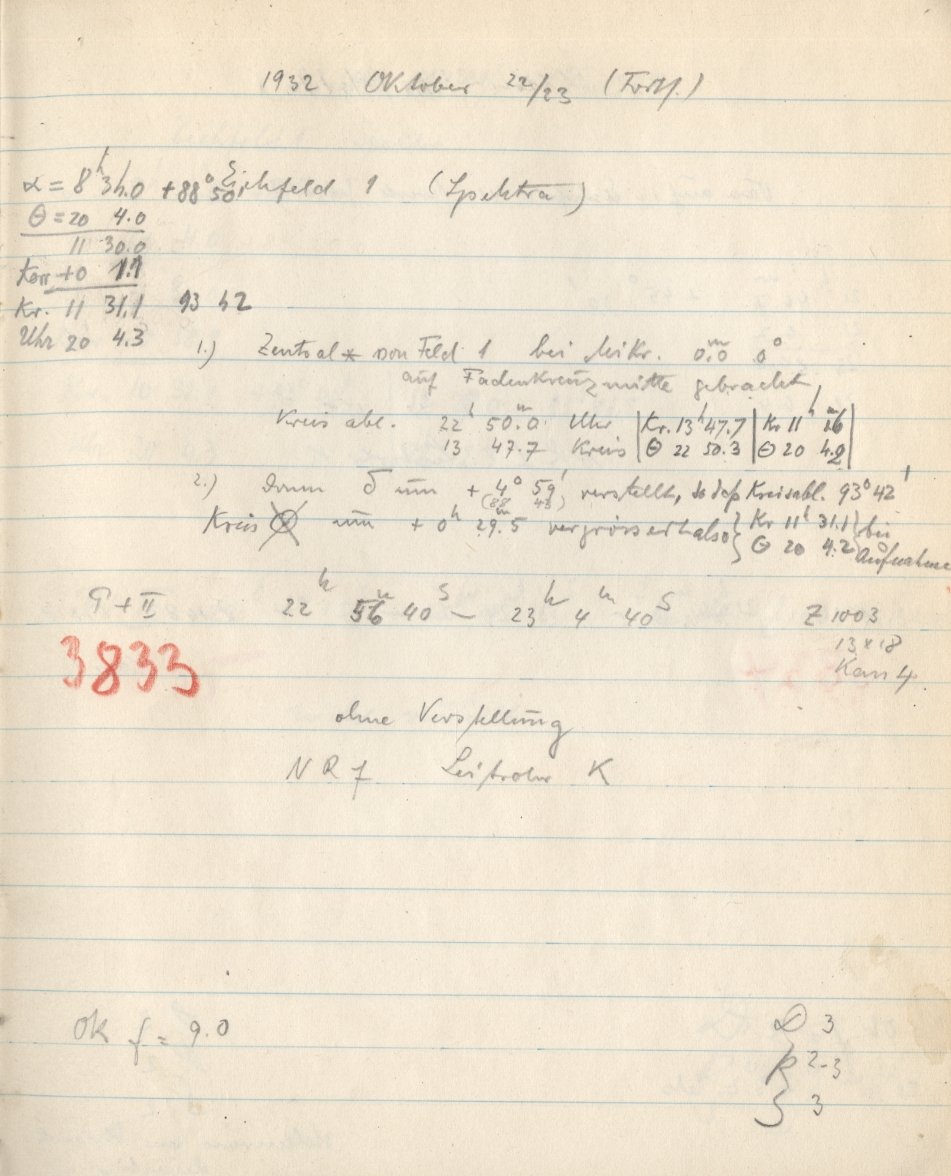 1932 Oktober 22/23 (Forts.)
α = 8h 34.0 +88° 50' Eichfeld 1 (Spektra)
Θ = 20 4.0
11 30.0
Korr +0 1.1
Kr. 11 31.1 93 42
Uhr 20 4.3
1.) Zentral * von Feld 1 bei Mikr. 0.0m 0°
auf Fadenkreuzmitte gebracht,
Kreis abl. 22h 50.0m Uhr | Kr. 13h 47.7 | Kr 11h
13 47.7 Kreis | Θ 22 50.3 | Θ 20 4.2 |
2.) Dann δ um + 4° 59' verstellt, so daß Kreisabl. 93° 42'
(88 43)
Kreis um + 0h 29.5m vergrössert also { Kr 11h 31.1 } bei
Θ 20 4.2 Aufnahme
T + II 22h 56m 40s — 23h 4m 40s Z 1003
13 x 18
3833 Kass 4
ohne Verstellung
N R f Leitrohr K
OK f = 9.0 D 3
R 2-3
S 3